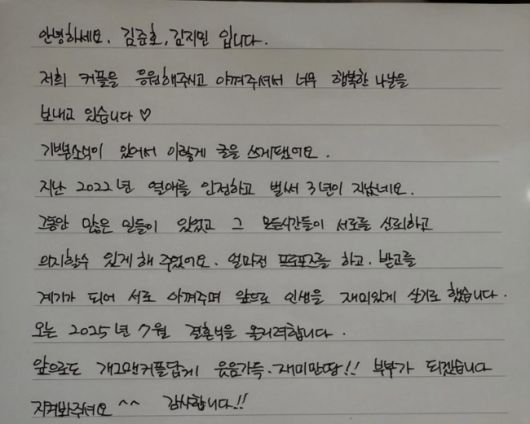 안녕하세요. 김준호, 김지민 입니다.
저희 커플을 응원해주시고 아껴주셔서 너무 행복한 나날을
보내고 있습니다 ♡
기쁜소식이 있어서 이렇게 글을 쓰게됐어요.
지난 2022년 열애를 인정하고 벌써 3년이 지났네요.
그동안 많은 일들이 있었고 그 모든시간들이 서로를 신뢰하고
의지할수 있게 해 주었어요. 얼마전 프로포즈를 하고. 받고를
계기가 되어 서로 아껴주며 앞으로 인생을 재미있게 살기로 했습니다.
오는 2025년 7월 결혼식을 올리려합니다.
앞으로도 개그맨커플답게 웃음가득. 재미만땅!! 부부가 되겠습니다
지켜봐주세요 ^^ 감사합니다!!